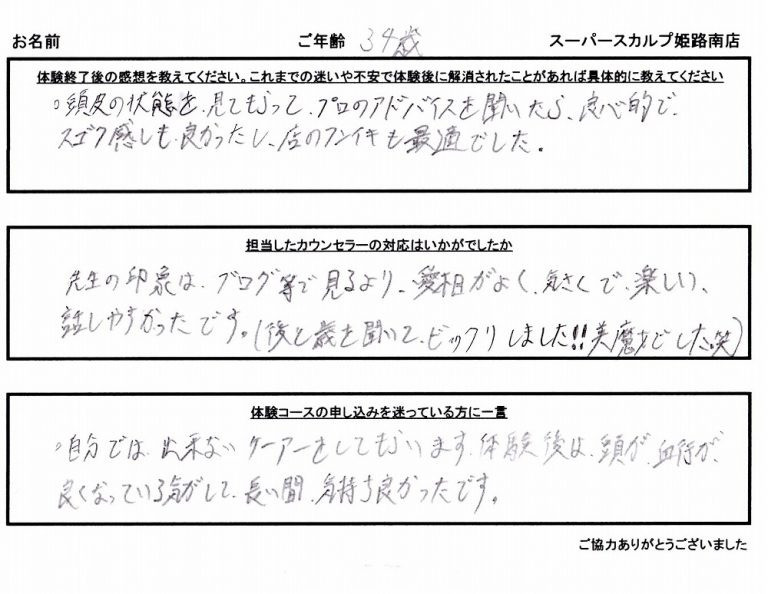 お名前 ご年齢 34歳 スーパースカルプ姫路南店
体験終了後の感想を教えてください。これまでの迷いや不安で体験後に解消されたことがあれば具体的に教えてください
。頭皮の状態を、見てもらって、プロのアドバイスを聞いたら、良心的で、
スゴク感じも、良かったし、店のフンイキも最適でした。
担当したカウンセラーの対応はいかがでしたか
先生の印象は、ブログ等で見るより、愛相がよく、気さくで、楽しい、
話しやすかったです。(後と歳を聞いて、ビックリしました!!美魔女でした。笑)
体験コースの申し込みを迷っている方に一言
。自分では、出来ないケーアーをしてもらいます、体験後は、頭が、血行が、
良くなっている気がして、長い間、気持ち良かったです。
ご協力ありがとうございました